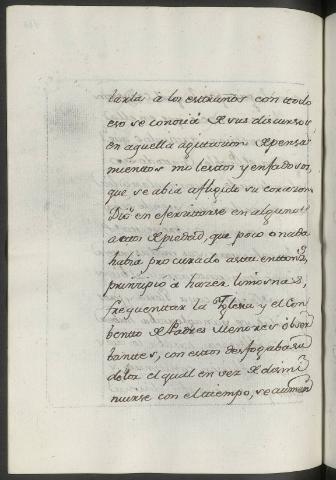 tarla à los estraños con todo
eso se conocia de sus discursos
en aquella agitacion de pensa
mientos molestos y enfadosos,
que se abia afligido su corazon.
Dio en exersitarse en algunos
actos de piedad, que poco o nada
habia procurado hasta entonces,
prinsipio à hazer limosnas,
frequentar la Yglesia y el Con
bento de Padres Menores obser
bantes, con estos desfogaba su
dolor el qual en vez de dismi
nuirse con el tiempo, se aumen